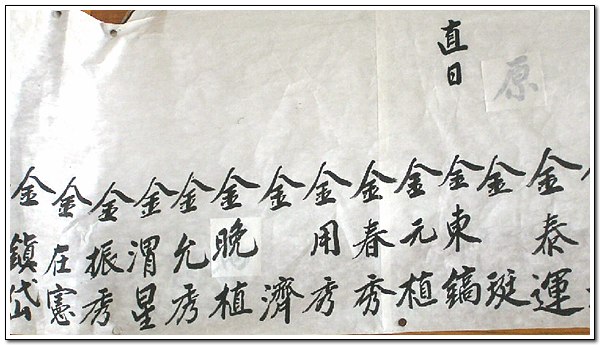 原
直日
金泰運
金珽
金東鎬
金元植
金春秀
金用秀
金濟
金晩植
金允秀
金渭星
金振秀
金在憲
金鎭岱